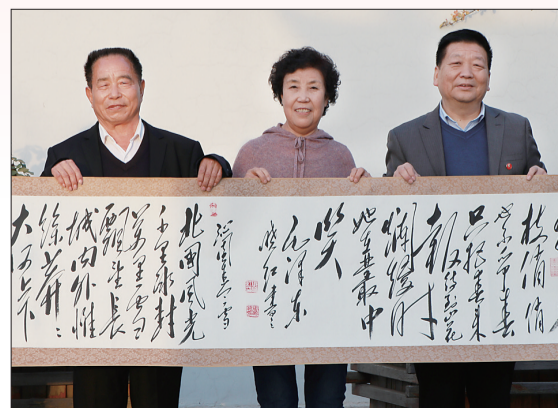 枝俏俏
也不争春
只把春来
報待到山花
爛漫时
她在丛中
笑
毛泽东
沁園春雪
北國風光
千里冰封
万里雪
飘望长
城内外惟
馀莽〻
大河上下